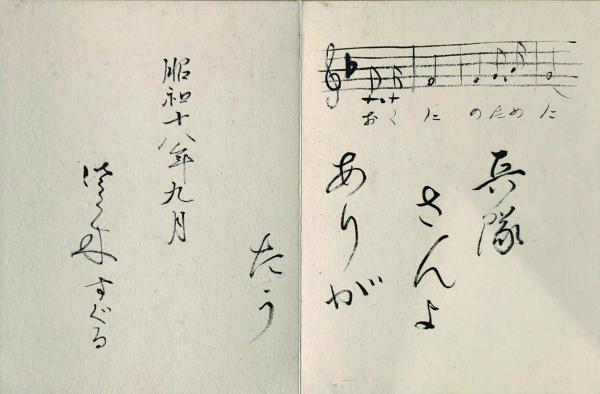 おくに のために
兵隊
さんよ
ありが
たう
昭和十八年九月
佐々木すぐる